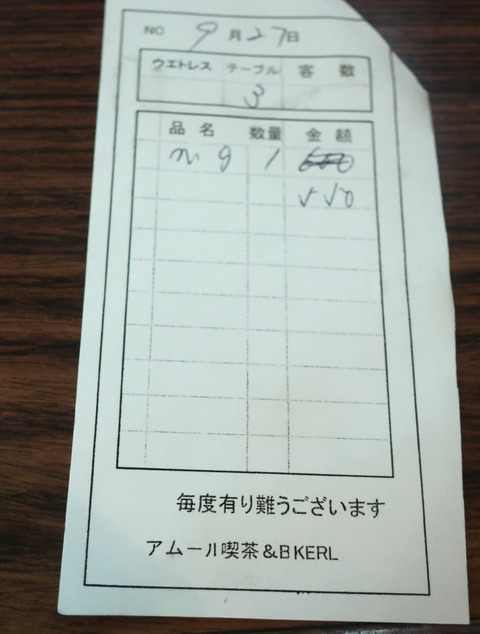 NO 9月27日
ウエトレス テーブル 客数
3
品名 数量 金額
m 9 1 600
550
毎度有り難うございます
アムール喫茶&BKERL